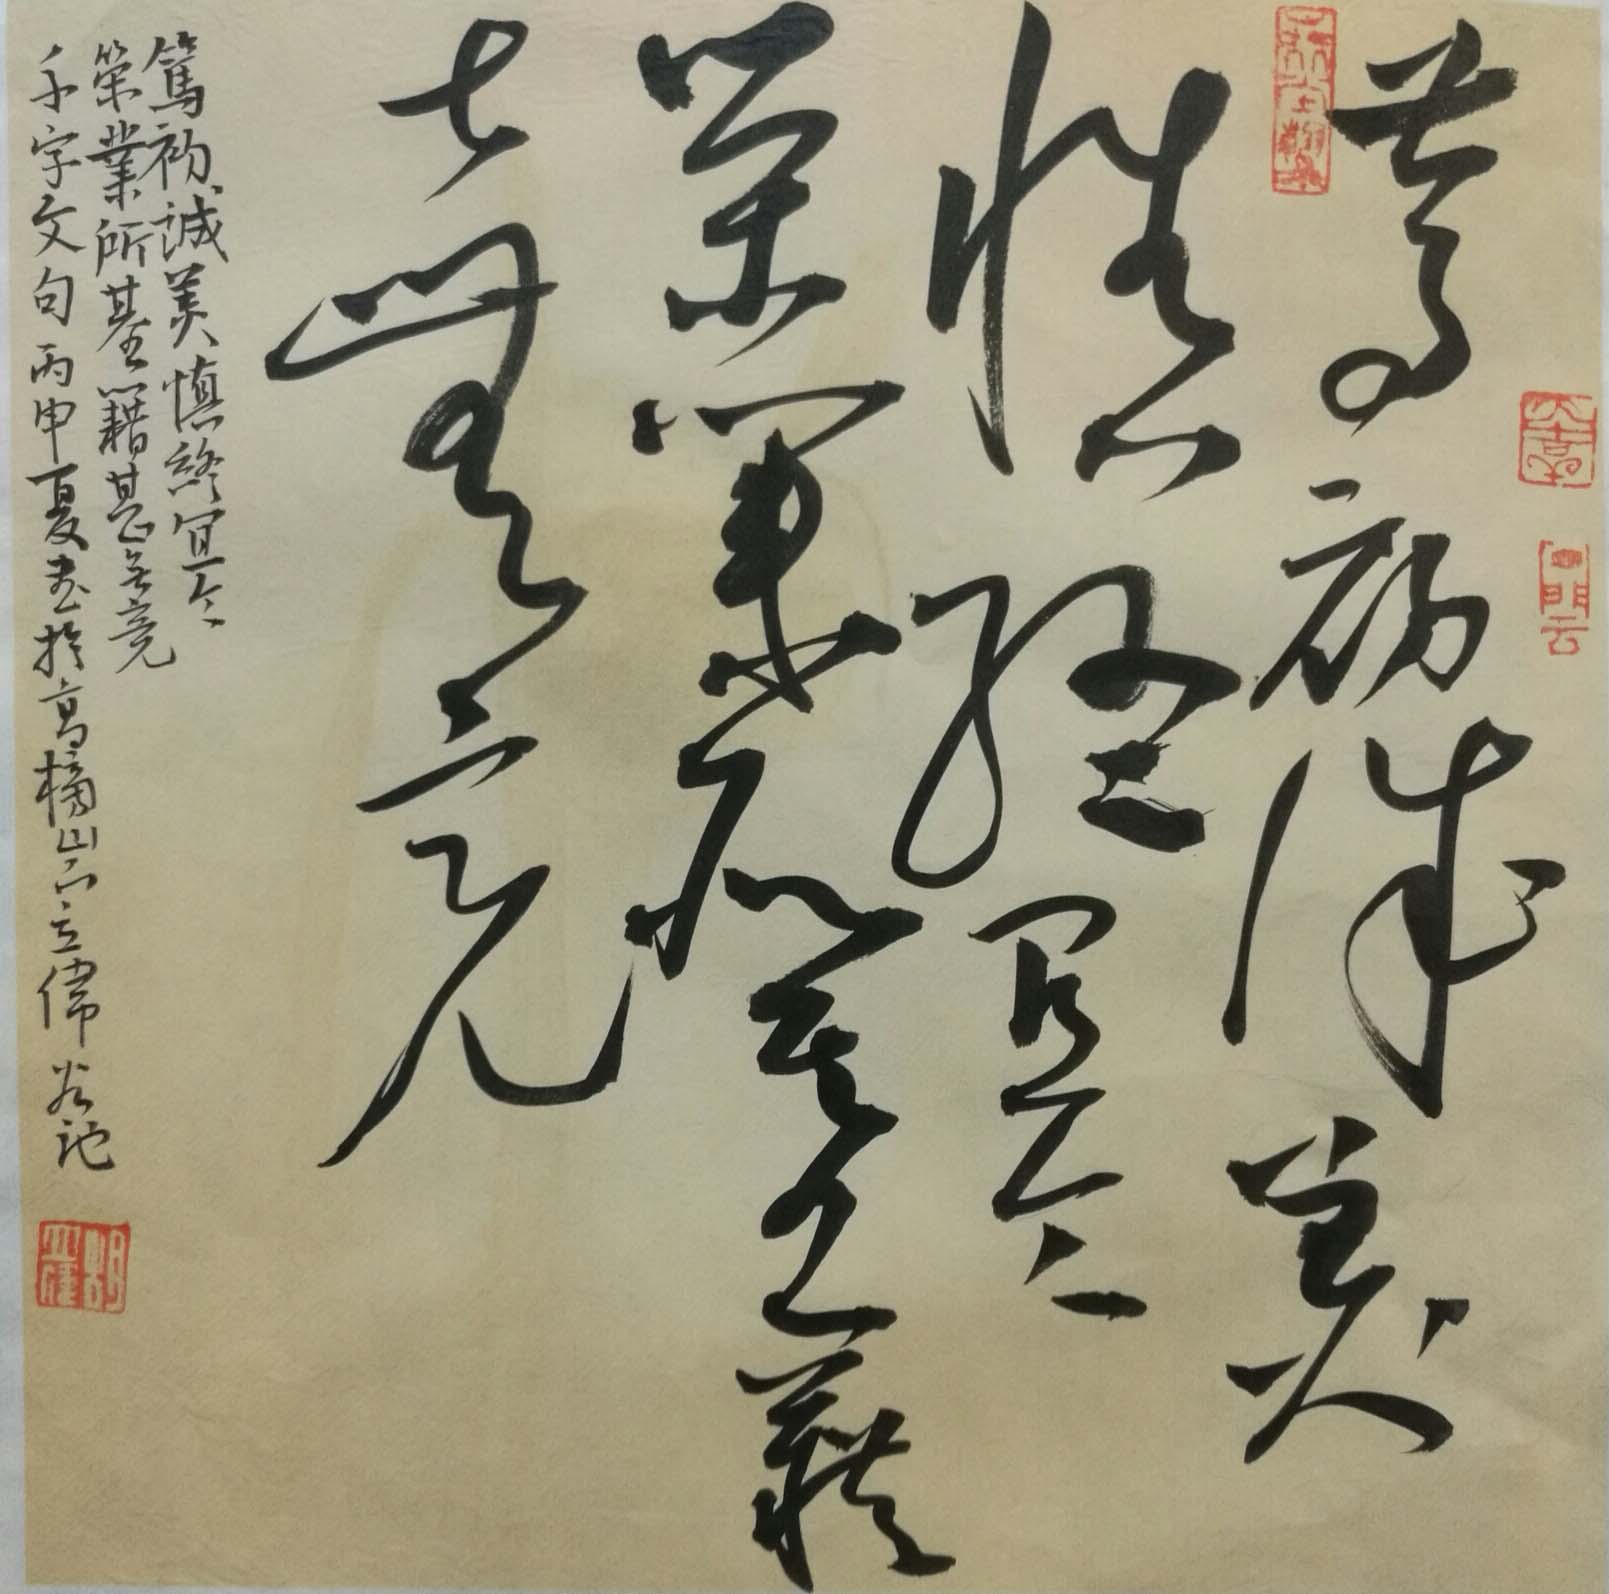 篤初誠美
慎終宜令
榮業所基籍
甚無竟
篤初誠美慎終宜令
榮業所基籍甚無竟
千字文句丙申夏書於高橋山立偉記